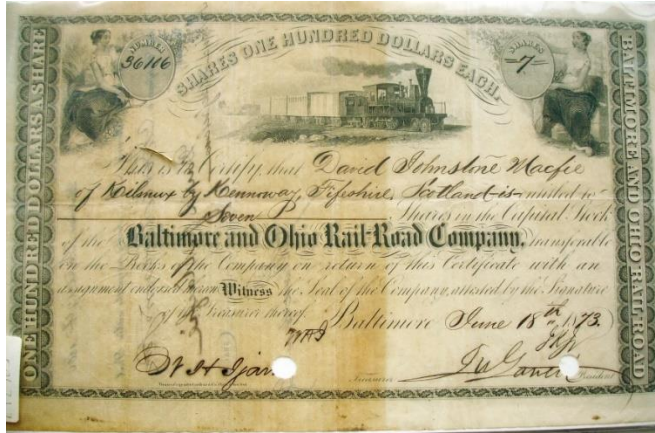 NUMBER
36116
SHARES ONE HUNDRED DOLLARS EACH.
SHARES
7
ONE HUNDRED DOLLARS A SHARE
BALTIMORE AND OHIO RAIL-ROAD
This is to Certify, that David Johnstone Macfie
of Kilmux by Kennoway, Fifeshire, Scotland is entitled to
Seven Shares in the Capital Stock
of the Baltimore and Ohio Rail-Road Company, transferable
on the Books of the Company on return of this Certificate with an
assignment endorsed thereon. Witness the Seal of the Company, attested by the Signature
of the Treasurer thereof. Baltimore June 18th 1873.
W H
Treasurer
President